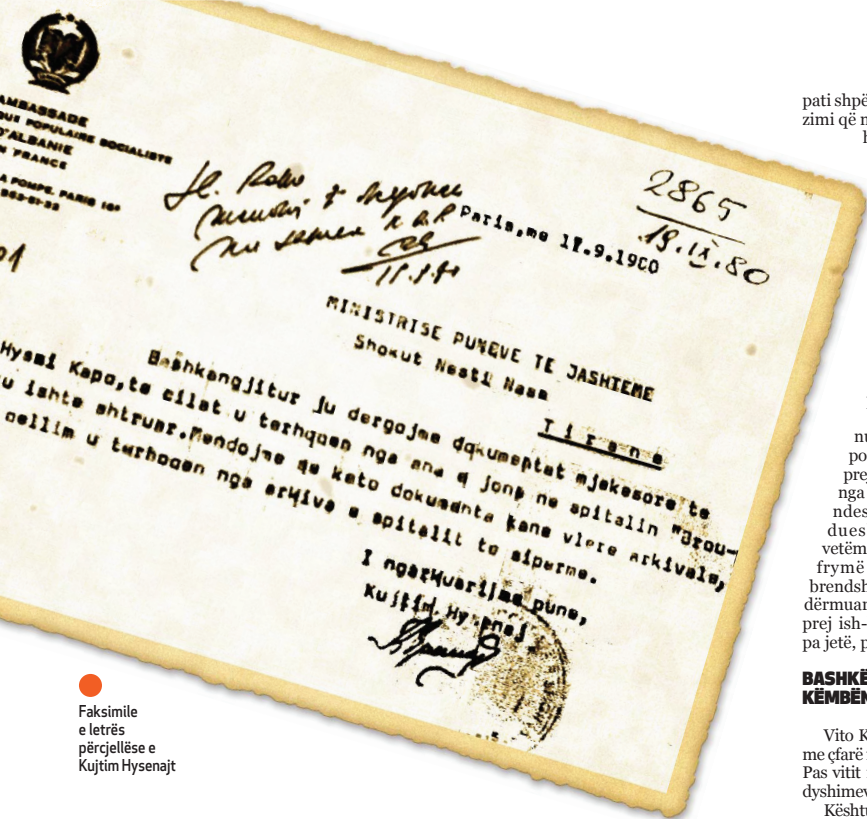 AMBASSADE
QUE POPULAIRE SOCIALISTE
D'ALBANIE
EN FRANCE
A POMPE. PARIS 16e
2865
19.IX.80
Paris,me 17.9.1980
MINISTRISE PUNEVE TE JASHTEME
Shokut Nesti Nase
Tirane
Bashkangjitur ju dergojme dokumentat mjekesore te
Hysni Kapo,te cilat u terhoqen nga ana e jone ne spitalin "Brou-
u ishte shtruar.Mendojme qe keto dokumenta kane vlere arkivale,
qellim u terhoqen nga arkiva e spitalit te siperme.
I ngarkuari me pune,
Kujtim Hysenaj
Faksimile
e letrës
përcjellëse e
Kujtim Hysenajt
pati shpë
zimi që n
h
nu
po
prej
nga
ndes
dues
vetëm
frymë
brendsh
dërmuar
prej ish-
pa jetë, p
BASHKË
KËMBËN
Vito K
me çfarë
Pas vitit
dyshimev
Kështu